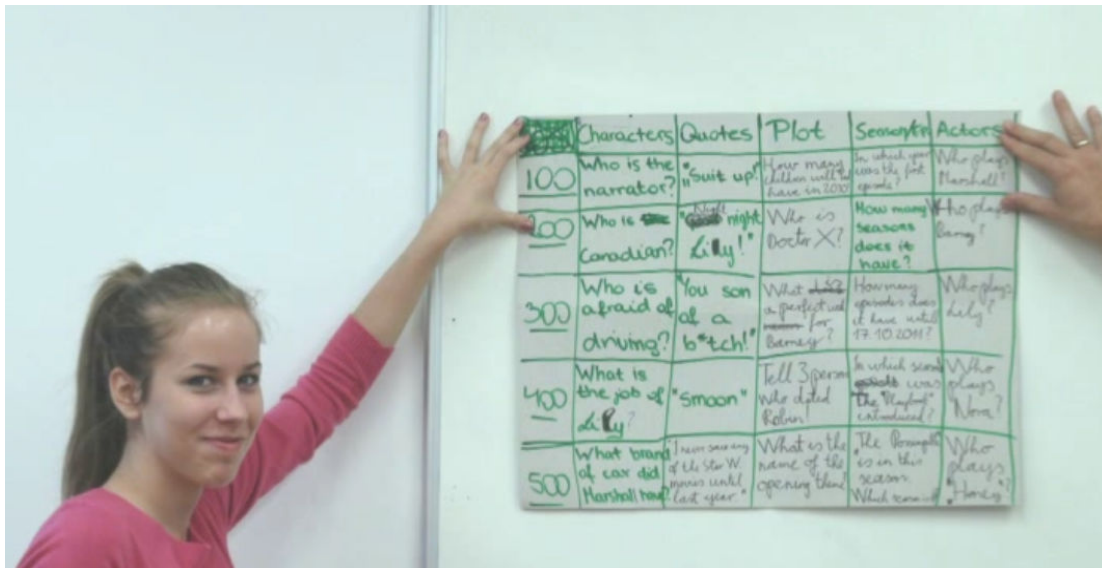 Characters Quotes Plot Actors
100
Who is the
narrator?
"Suit up!"
How many
children will he
have in 2030?
In which year
was the first
episode?
Who plays
Marshall?
200
Who is
Canadian?
"Night night
Lilly!"
Who is
Doctor X?
How many
seasons
does it
have?
Who plays
Barney?
300
Who is
afraid of
driving?
"You son
of a
b*tch!"
What
a perfect
for
Barney?
How many
episodes does
it have until
17.10.2011?
Who plays
Lily?
400
What is
the job of
Lilly?
"Smoon"
Tell 3 person
who dated
Robin!
In which
was
the "Playbook"
introduced?
Who
plays
Nora?
500
What brand
of car did
Marshall have?
of the Star W.
movies until
last year."
What is the
name of the
opening
The
is in this
season
Which
Who
plays
"Honey"?